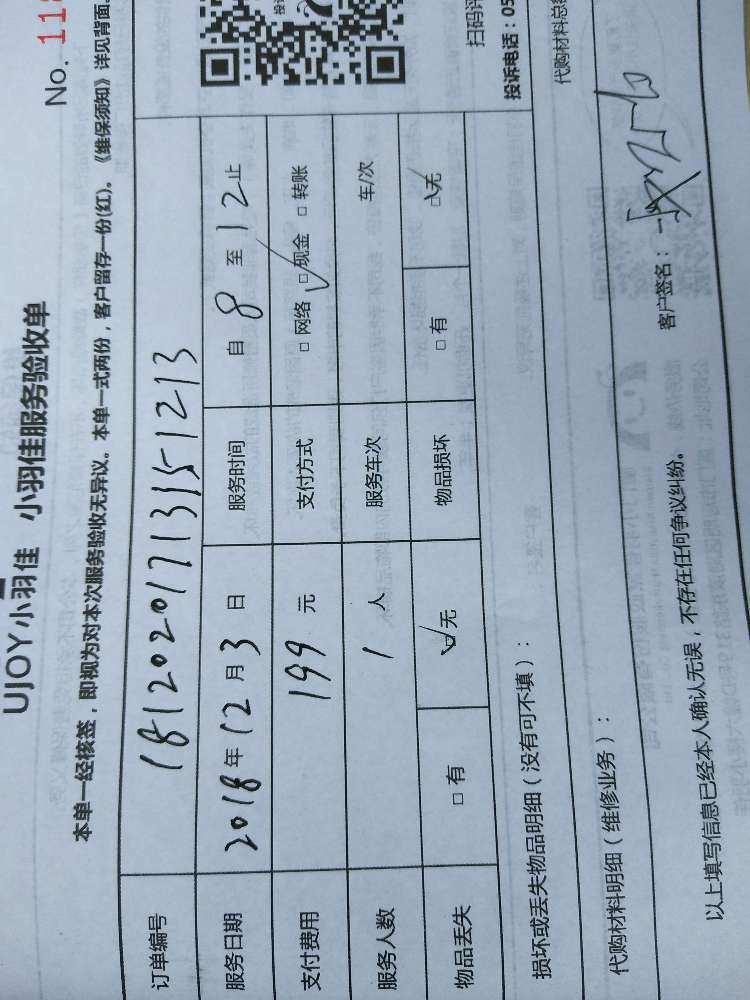 No. 118
UJOY小羽佳 小羽佳服务验收单
本单一经核签，即视为对本次服务验收无异议。本单一式两份，客户留存一份(红)。《维保须知》详见背面。
订单编号 1812020171315 1213
服务日期 2018年12月3日 服务时间 自 8 至 12 止
支付费用 199 元 支付方式 □ 网络 □ 现金 □ 转账
服务人数 1 人 服务车次 车/次
物品丢失 □ 有 □ 无 物品损坏 □ 有 □ 无
扫码评
投诉电话：05
损坏或丢失物品明细（没有可不填）：
代购材料明细（维修业务）： 代购材料总
以上填写信息已经本人确认无误，不存在任何争议纠纷。 客户签名：